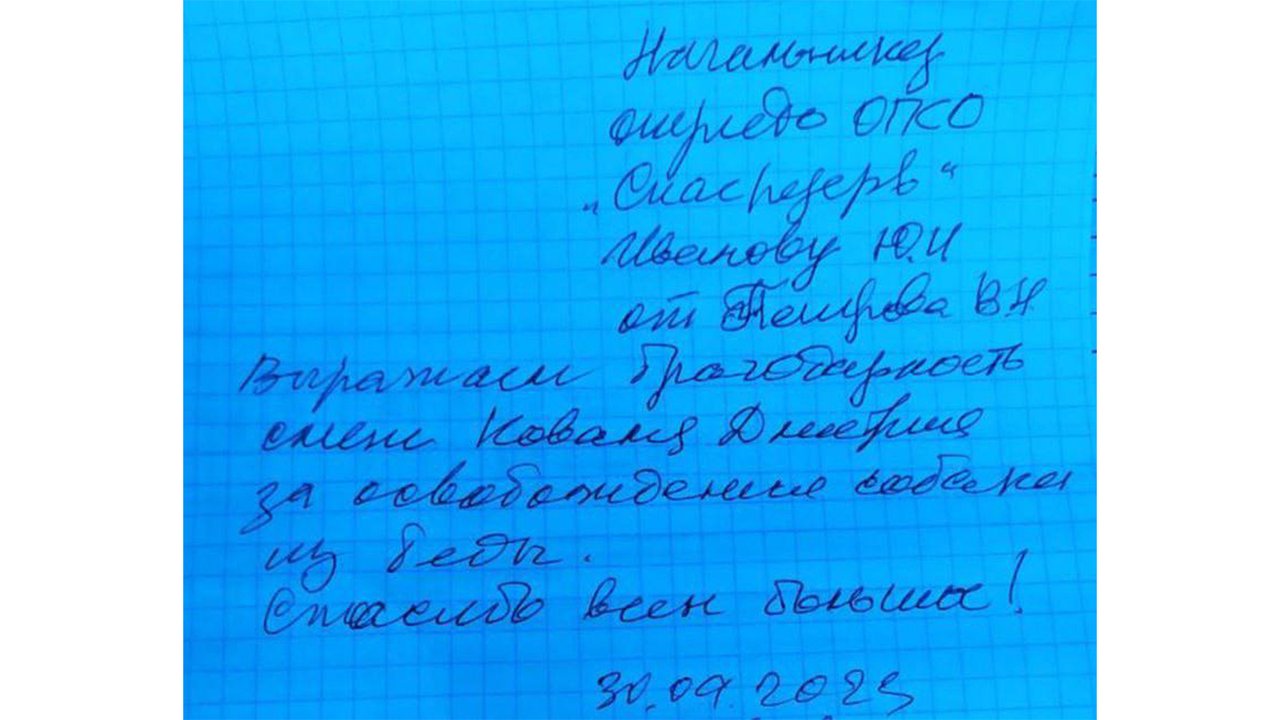 Начальнику
отряда ОПСО
„Спасрезерв“
Иванову Ю.И
от Петрова В.Н.
Выражаем благодарность
смене Коваля Дмитрия
за освобождение собаки
из беды.
Спасибо всем большое!
30.09.2025